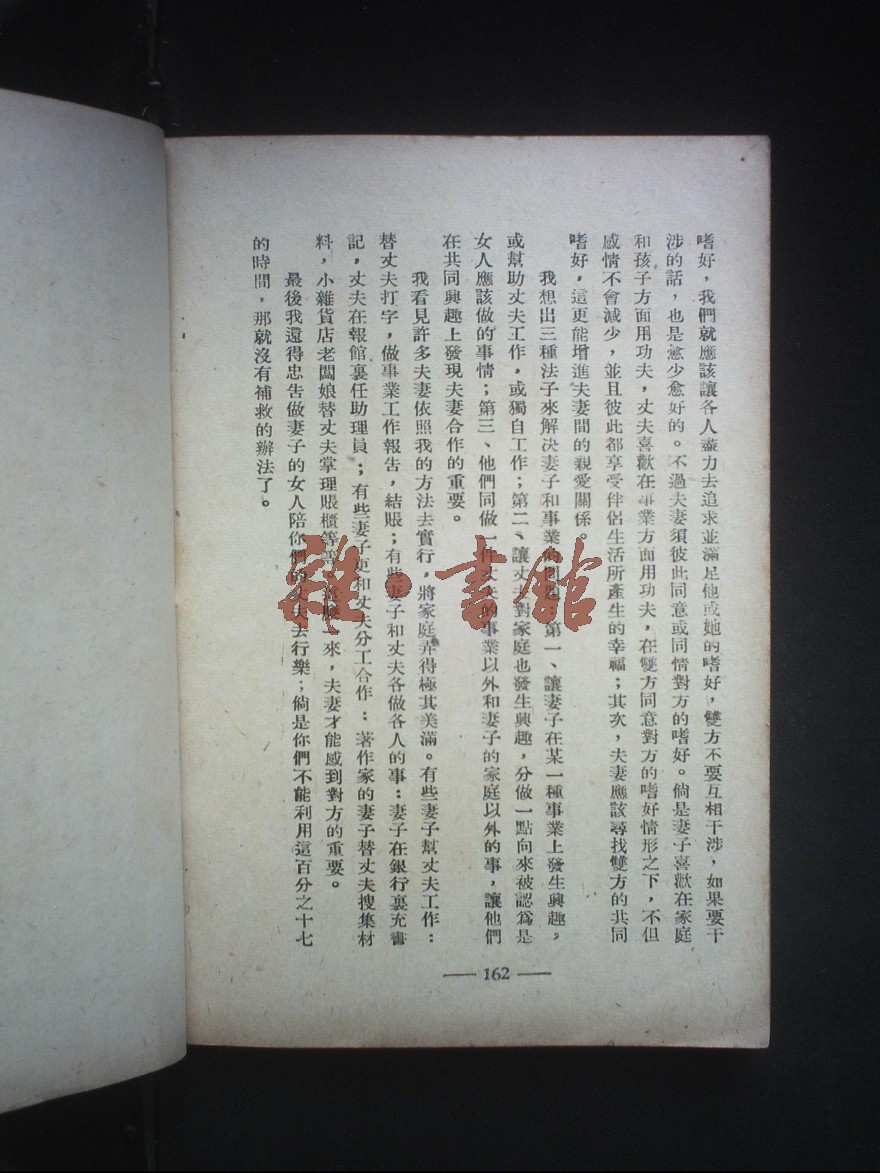 嗜好，我們就應該讓各人盡力去追求並滿足他或她的嗜好，雙方不要互相干涉，如果要干
涉的話，也是愈少愈好的。不過夫妻須彼此同意或同情對方的嗜好。倘是妻子喜歡在家庭
和孩子方面用功夫，丈夫喜歡在事業方面用功夫，在雙方同意對方的嗜好情形之下，不但
感情不會減少，並且彼此都享受伴侶生活所產生的幸福；其次，夫妻應該尋找雙方的共同
嗜好，這更能增進夫妻間的親愛關係。
我想出三種法子來解決妻子和事業的問題：第一、讓妻子在某一種事業上發生興趣，
或幫助丈夫工作，或獨自工作；第二、讓丈夫對家庭也發生興趣，分做一點向來被認爲是
女人應該做的事情；第三、他們同做一件丈夫的事業以外和妻子的家庭以外的事，讓他們
在共同興趣上發現夫妻合作的重要。
我看見許多夫妻依照我的方法去實行，將家庭弄得極其美滿。有些妻子幫丈夫工作：
替丈夫打字，做事業工作報告，結賬；有些妻子和丈夫各做各人的事：妻子在銀行裏充書
記，丈夫在報館裏任助理員；有些妻子更和丈夫分工合作：著作家的妻子替丈夫搜集材
料，小雜貨店老闆娘替丈夫掌理賬櫃等等。一來，夫妻才能感到對方的重要。
最後我還得忠告做妻子的女人陪你們的丈夫去行樂；倘是你們不能利用這百分之十七
的時間，那就沒有補救的辦法了。
— 162 —
雜·書館